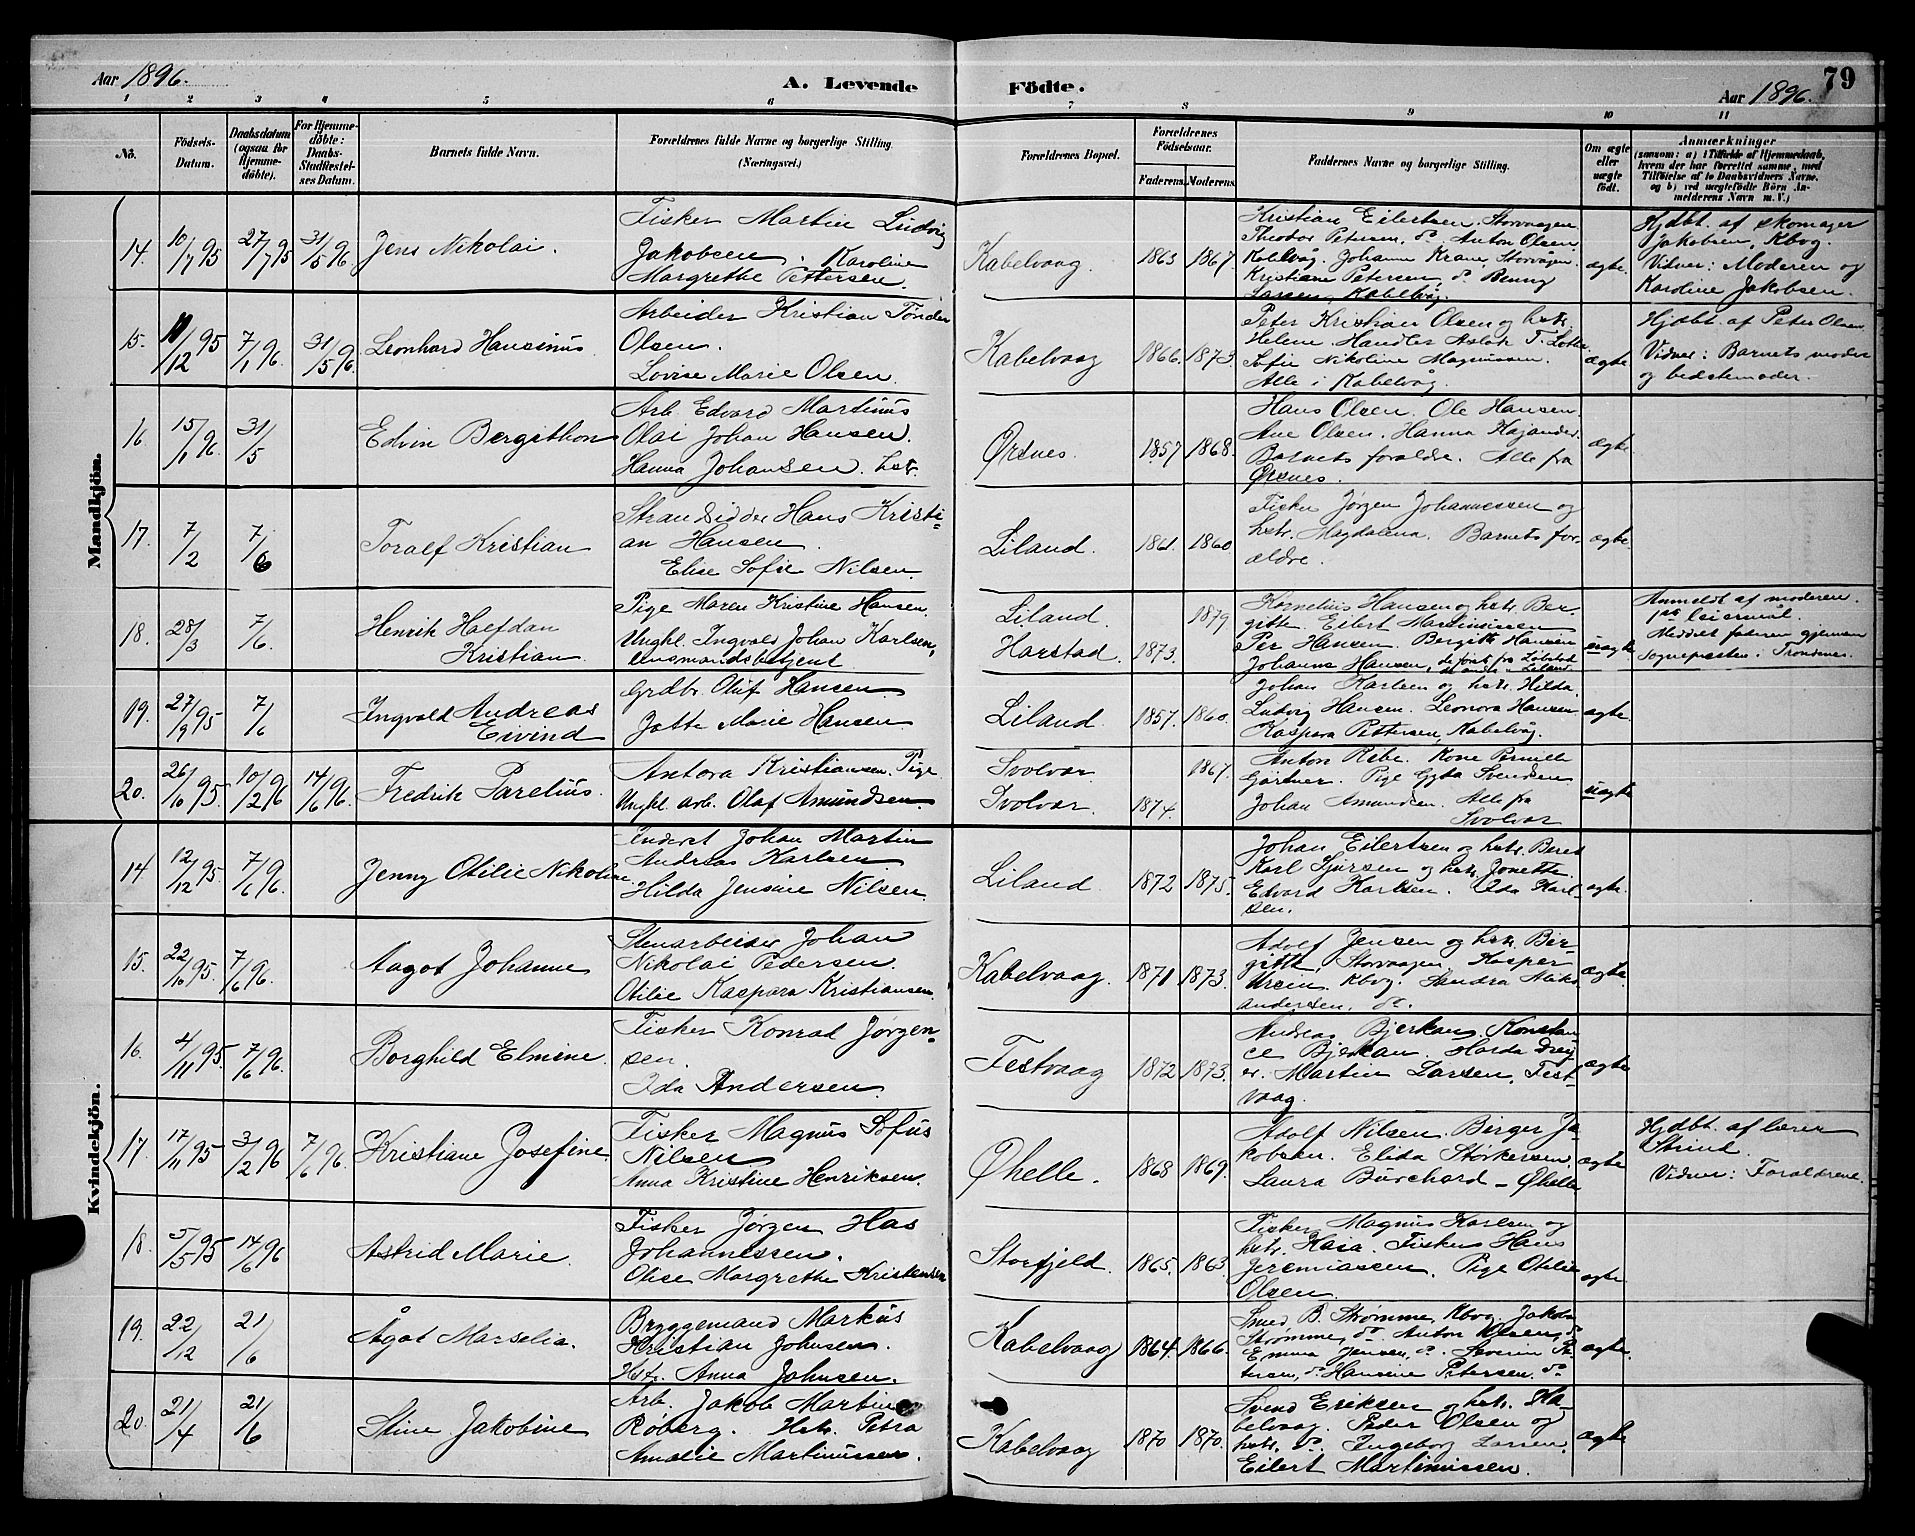 Aar 1896. A. Levende Födte. Aar 1896. 79
1 2 3 4 5 6 7 8 9 10 11
No. Födsels-Datum. Daabsdatum (ogsaa for Hjemme-döbte). For Hjemme-döbte: Daabs-Stadfestel-ses Datum. Barnets fulde Navn. Forældrenes fulde Navne og borgerlige Stilling. (Næringsvei.) Forældrenes Bopæl. Forældrenes Födselsaar. Faderens. Moderens. Faddernes Navne og borgerlige Stilling. Om ægte eller uægte födt. Anmærkninger (saasom: a) i Tilfælde af Hjemmedaab, hvem der har forrettet samme, med Tilföielse af to Daabsvidners Navne, og b) ved uægtefödte Börn An-melderens Navn m. V.)
Mandkjön.
14. 10/7 95 27/7 95 31/5 96. Jens Nikolai. Fisker Martin Ludvig
Jakobsen. Karoline
Margrethe Pettersen.
Kabelvaag. 1863 1867
Kristian Eilertsen. Storvaagen
Theodor Petersen, do. Anton Olsen
Kabelvåg. Johanna Krane Storvågen.
Kristiane Petersen, do. Benny
Larsen, Kabelvåg.
ægte.
Hjdbt. af skomager
Jakobsen, Kbog.
Vidner: Moderen og
Karoline Jakobsen.
15. 11/12 95 7/1 96. 31/5 96. Leonhard Hansinus Arbeider Kristian Tönder
Olsen.
Lovise Marie Olsen.
Kabelvaag 1866. 1873
Peter Kristian Olsen og hstr.
Helene. Handler Aslak T. Lotte
Sofie Nikoline Magnussen.
Alle i Kabelvåg.
ægte.
Hjdbt. af Peter Olsen
Vidner: Barnets moder
og bedstemoder.
16. 15/1 96. 31/5 Edvin Bergithon Arb. Edvard Martinus
Olai Johan Hansen.
Hanna Johansen. hstr.
Ørsnes. 1857 1868.
Hans Olsen. Ole Hansen.
Ane Olsen. Hanna Kajander.
Barnets foraldre. Alle fra
Ørsnes.
ægte
17. 7/2 7/6 Toralf Kristian Strandsidder Hans Kristi-
an Hansen.
Elise Sofie Nilsen.
Liland. 1861. 1860
Fisker Jørgen Johannessen og
hstr. Magdalena. Barnets for-
ældre.
ægte.
18. 28/3 7/6. Henrik Halfdan
Kristian. Pige Maren Kristine Hansen.
Ungkl. Ingvald Johan Karlsen,
lensmandsbetjent
Liland. 1879
Harstad. 1873.
Kornelius Hansen og hstr. Ber-
gitte. Eilert Martinussen
Per Hansen. Bergitte Hansen
Johanna Hansen, de först fra
de andre Liland.
uægte
Anmeldt af moderen.
1ste leiermål.
Meddelt faderen gjennem
Sognepresten i Trondenes.
19. 27/9 95 7/6 Ingvald Andreas
Eivind Grdbr. Oluf Hansen
Jotte Marie Hansen.
Liland. 1857. 1860.
Johan Karlsen og hstr. Hilda.
Ludvig Hansen. Leonora Hansen
Kaspara Pettersen, Kabelvåg.
ægte.
20. 26/10 95. 10/2 96 14/6 96. Fredrik Parelius. Antora Kristiansen. Pige
Ungkl. arb. Olaf Amundsen.
Svolvær 1867.
Svolvær. 1874.
Anton Rebe. Kone Pernille
Gärtner. Pige Gyda Svendsen
Johan Amundsen. Alle fra
Svolvær
uægte
Kvindekjön.
14 12/12 95. 7/6 96. Jenny Otilie Nikoline Inderst Johan Martin
Andreas Karlsen
Hilda Jensine Nilsen.
Liland 1872 1875.
Johan Eilertsen og hstr. Beret
Karl Sjursen og hstr. Jonette.
Edvard Karlsen. Ida Karl-
sen.
ægte.
15. 22/10 95. 7/6 96. Aagot Johanne Stenarbeider Johan
Nikolai Pedersen.
Otilie Kaspara Kristiansen.
Kabelvaag. 1871 1873.
Adolf Jensen og hstr. Bir-
gitte, Storvaagen. Kasper
Kbog. Sandra
Andersen, do.
ægte.
16. 4/11 95 7/6 96. Borghild Elmine. Fisker Konrad Jørgen-
sen.
Ida Andersen.
Festvaag 1872 1873.
Andreas Bjerkan, Konstan-
ce Bjerkan. Harda Drey-
er. Martin Larsen, Fest-
vaag.
ægte
17. 17/11 95 3/2 96 7/6 96. Kristiane Josefine. Fisker Magnus Sofus
Nilsen
Anna Kristine Henriksen.
Øhelle. 1868 1869.
Adolf Nilsen. Birger Ja-
kobsen. Elida Storkersen.
Laura Burchard – Øhelle
ægte
Hjdbt. af lærer
Strind.
Vidner: Foraldrene.
18. 5/5 95 14/6 96 Astrid Marie. Fisker Jørgen Has
Johannessen.
Olise Margrethe Kristensen
Storfjeld. 1865. 1863.
Fisker Magnus Karlsen og
hstr. Kaia. Fisker Hans
Jeremiassen. Pige Otilie
Olsen.
ægte
19. 22/12 21/6 Ågot Marselia. Bryggemand Markus
Kristian Johnsen.
Hstr. Anna Johnsen.
Kabelvaag 1864. 1866.
Smed B. Strømme, Kbog, Jakob
Strømme, do. Anton Olsen, do
Emma Jensen, do. Severin Pe-
tersen, do Hansine Petersen. do
ægte.
20. 21/4 21/6 Stine Jakobine Arb. Jakob Martin
Røberg. Hstr. Petra
Amalie Martinussen.
Kabelvaag 1870 1870.
Svend Eriksen og hstr. Ka-
belvaag. Peder Olsen og
hstr. do. Ingeborg Larsen.
Eilert Martinussen.
ægte